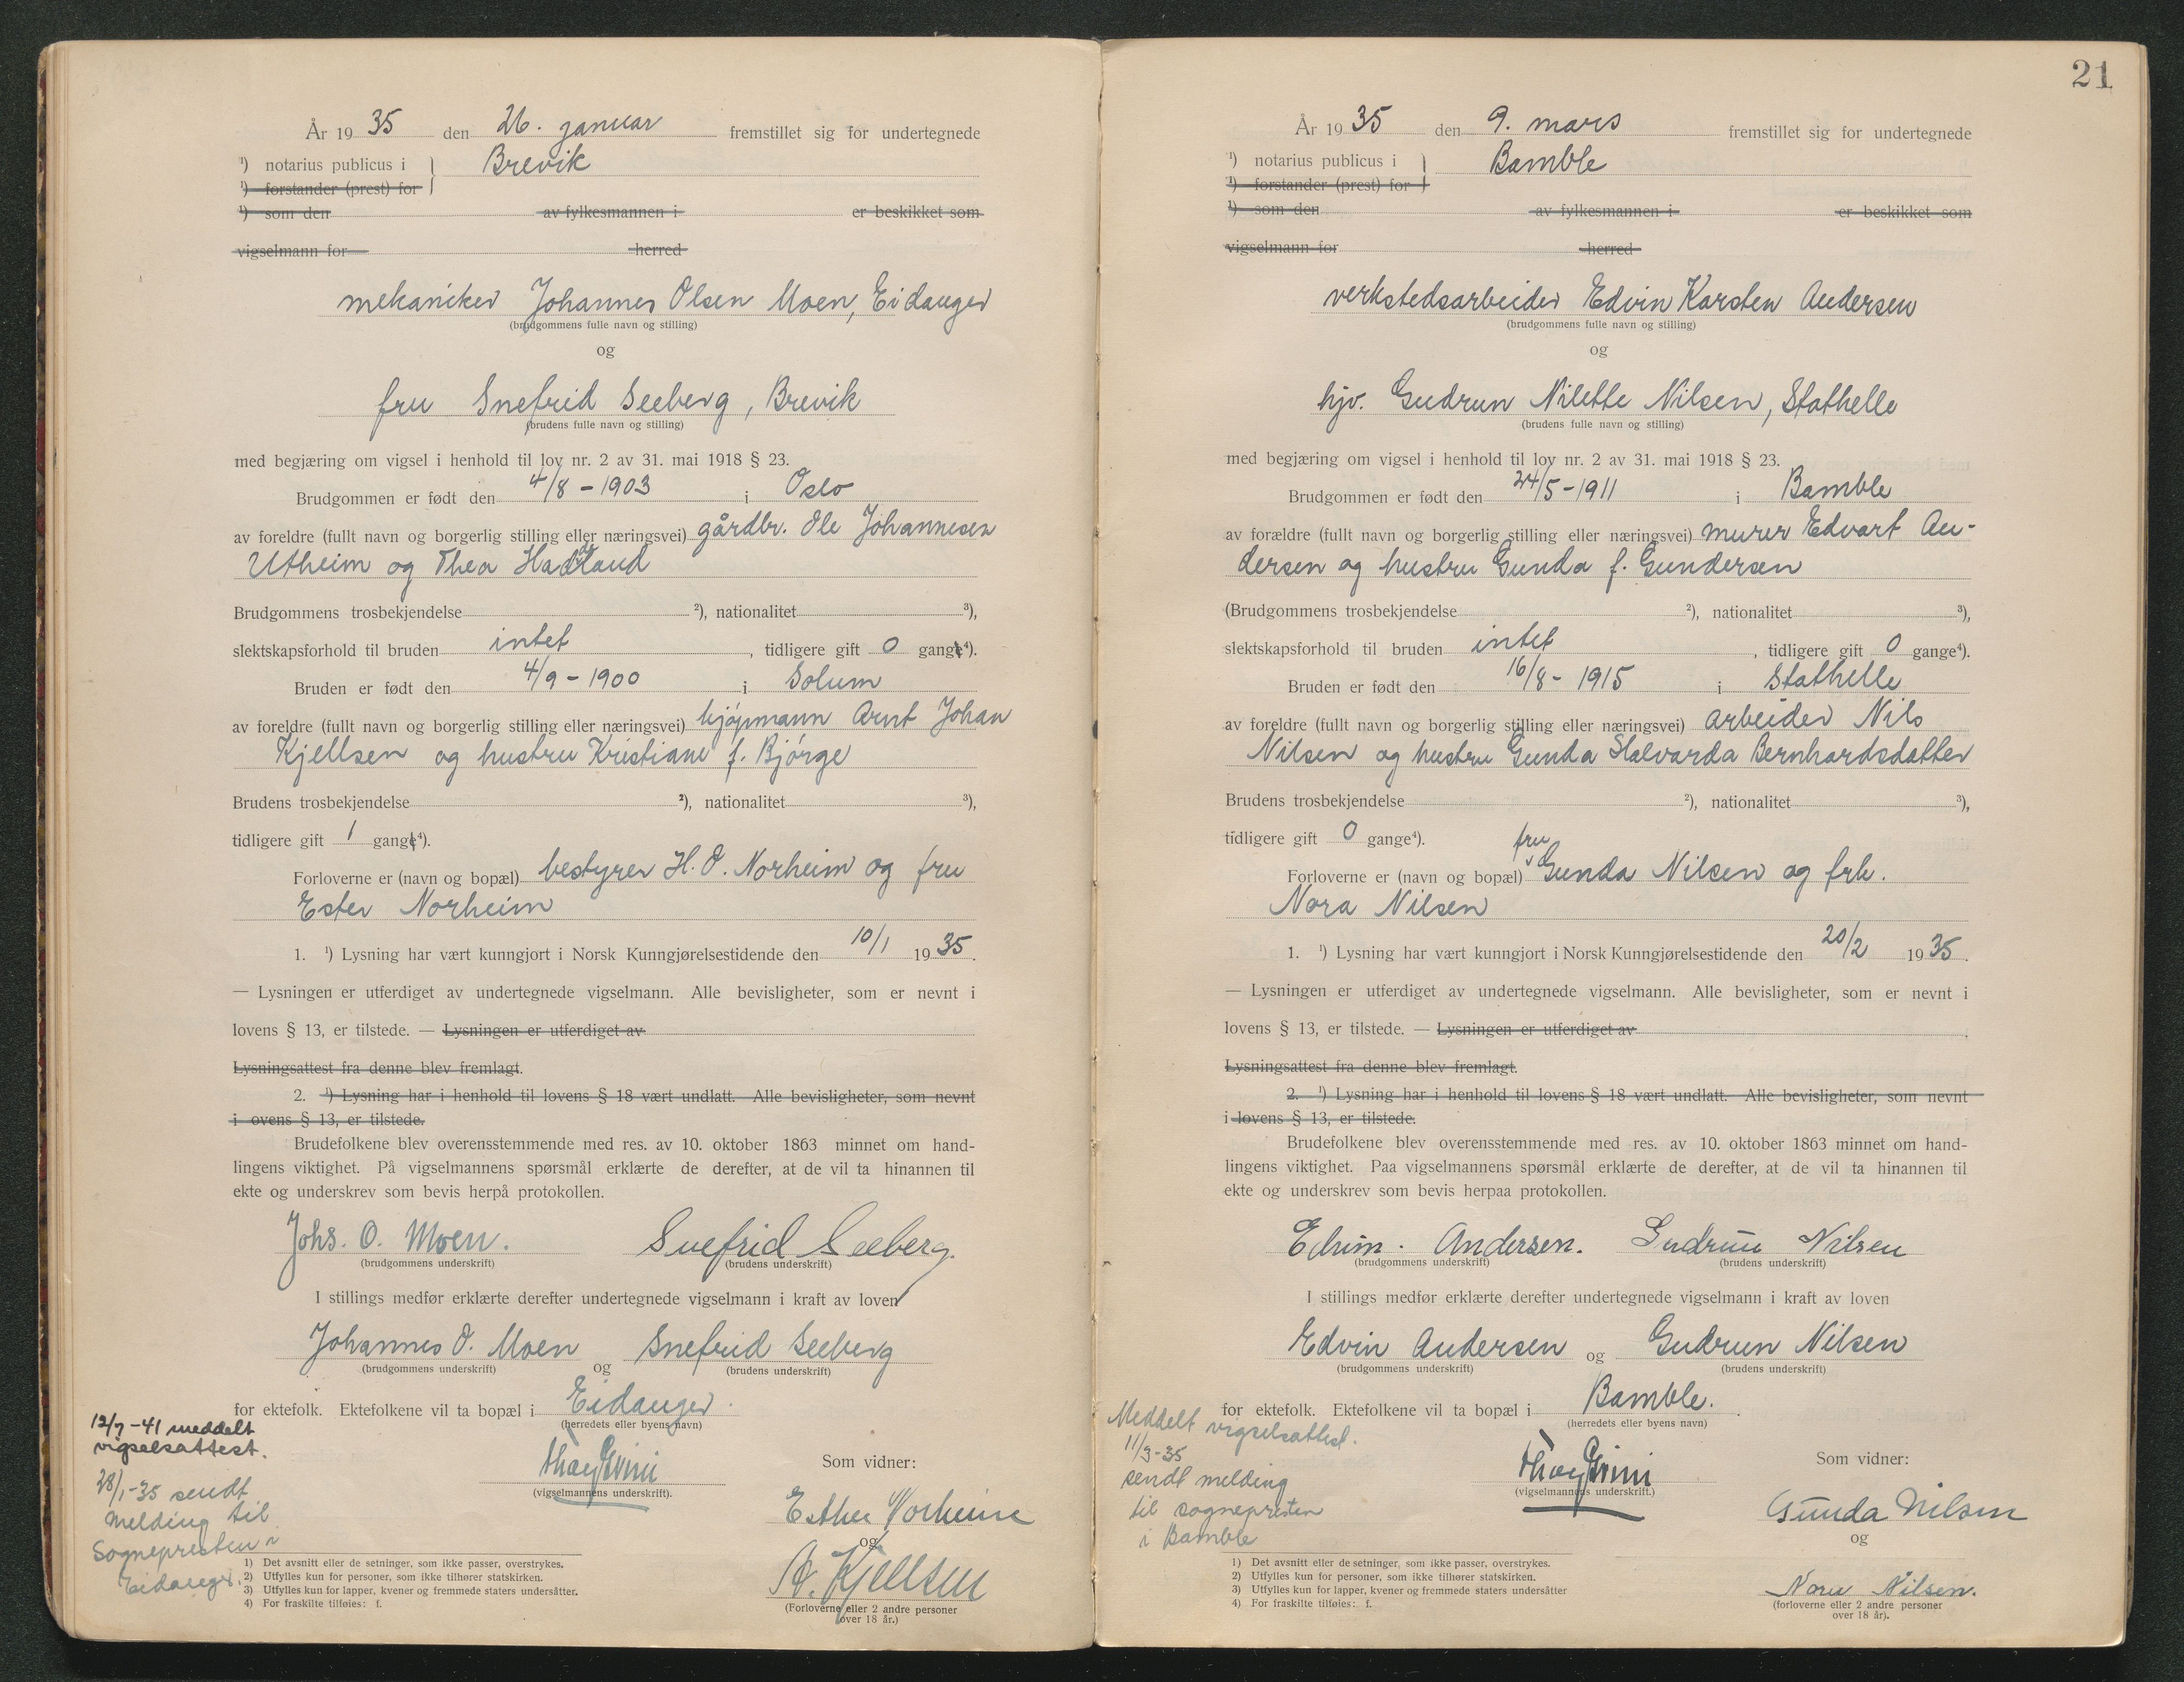 År 19 35 den 26. januar fremstillet sig for undertegnede
¹) notarius publicus i } Brevik
¹) forstander (prest) for
¹) som den av fylkesmannen i er beskikket som
vigselmann for herred
mekaniker Johannes Olsen Moen, Eidanger
(brudgommens fulle navn og stilling)
og
fru Snefrid Seeberg, Brevik
(brudens fulle navn og stilling)
med begjæring om vigsel i henhold til lov nr. 2 av 31. mai 1918 § 23.
Brudgommen er født den 4/8 - 1903 i Oslo
av foreldre (fullt navn og borgerlig stilling eller næringsvei) gårdbr. Ole Johannesen
Utheim og Thea
Brudgommens trosbekjendelse ²), nationalitet ³),
slektskapsforhold til bruden intet, tidligere gift 0 gange⁴).
Bruden er født den 4/9 - 1900 i Solum
av foreldre (fullt navn og borgerlig stilling eller næringsvei) kjøpmann Arnt Johan
Kjellsen og hustru Kristiane f. Bjørge
Brudens trosbekjendelse ²), nationalitet ³),
tidligere gift 1 gange⁴).
Forloverne er (navn og bopæl) bestyrer H. O. Norheim og fru
Ester Norheim
1. ¹) Lysning har vært kunngjort i Norsk Kunngjørelsestidende den 10/1 1935.
— Lysningen er utferdiget av undertegnede vigselmann. Alle bevisligheter, som er nevnt i
lovens § 13, er tilstede. — Lysningen er utferdiget av
Lysningsattest fra denne blev fremlagt.
2. ¹) Lysning har i henhold til lovens § 18 vært undlatt. Alle bevisligheter, som nevnt
i ovens § 13, er tilstede.
Brudefolkene blev overensstemmende med res. av 10. oktober 1863 minnet om hand-
lingens viktighet. På vigselmannens spørsmål erklærte de derefter, at de vil ta hinannen til
ekte og underskrev som bevis herpå protokollen.
Johs. O. Moen. Snefrid Seeberg.
(brudgommens underskrift) (brudens underskrift)
I stillings medfør erklærte derefter undertegnede vigselmann i kraft av loven
Johannes O. Moen og Snefrid Seeberg
(brudgommens underskrift) (brudens underskrift)
for ektefolk. Ektefolkene vil ta bopæl i Eidanger.
(herredets eller byens navn)
12/7-41 meddelt
vigselsattest.
28/1-35 sendt
melding til
Sognepresten i
Eidanger.
(vigselmannens underskrift).
Som vidner:
Esther Norheim
og
A. Kjellsen
(Forloverne eller 2 andre personer
over 18 år.)
1) Det avsnitt eller de setninger, som ikke passer, overstrykes.
2) Utfylles kun for personer, som ikke tilhører statskirken.
3) Utfylles kun for lapper, kvener og fremmede staters undersåtter.
4) For fraskilte tilføies: f.
21
År 19 35 den 9. mars fremstillet sig for undertegnede
¹) notarius publicus i } Bamble
¹) forstander (prest) for
¹) som den av fylkesmannen i er beskikket som
vigselmann for herred
verkstedsarbeider Edvin Karsten Andersen
(brudgommens fulle navn og stilling)
og
hjv. Gudrun Nilette Nilsen, Stathelle
(brudens fulle navn og stilling)
med begjæring om vigsel i henhold til lov nr. 2 av 31. mai 1918 § 23.
Brudgommen er født den 24/5 - 1911 i Bamble
av forældre (fullt navn og borgerlig stilling eller næringsvei) murer Edvart An-
dersen og hustru Gunda f. Gundersen
(Brudgommens trosbekjendelse ²), nationalitet ³),
slektskapsforhold til bruden intet, tidligere gift 0 gange⁴).
Bruden er født den 16/8 - 1915 i Stathelle
av foreldre (fullt navn og borgerlig stilling eller næringsvei) arbeider Nils
Nilsen og hustru Gunda Halvarda Bernhardsdatter
Brudens trosbekjendelse ²), nationalitet ³),
tidligere gift 0 gange⁴).
Forloverne er (navn og bopæl) fru Gunda Nilsen og frk.
Nora Nilsen
1. ¹) Lysning har vært kunngjort i Norsk Kunngjørelsestidende den 20/2 1935.
— Lysningen er utferdiget av undertegnede vigselmann. Alle bevisligheter, som er nevnt i
lovens § 13, er tilstede. — Lysningen er utferdiget av
Lysningsattest fra denne blev fremlagt.
2. ¹) Lysning har i henhold til lovens § 18 vært undlatt. Alle bevisligheter, som nevnt
i lovens § 13, er tilstede.
Brudefolkene blev overensstemmende med res. av 10. oktober 1863 minnet om hand-
lingens viktighet. Paa vigselmannens spørsmål erklærte de derefter, at de vil ta hinannen til
ekte og underskrev som bevis herpaa protokollen.
Edvin. Andersen. Gudrun Nilsen
(brudgommens underskrift) (brudens underskrift)
I stillings medfør erklærte derefter undertegnede vigselmann i kraft av loven
Edvin Andersen og Gudrun Nilsen
(brudgommens underskrift) (brudens underskrift)
for ektefolk. Ektefolkene vil ta bopæl i Bamble.
(herredets eller byens navn)
Meddelt vigselsattest.
11/3-35
sendt melding
til sognepresten
i Bamble
(vigselmannens underskrift.)
Som vidner:
Gunda Nilsen
og
Nora Nilsen.
(forloverne eller 2 andre personer
over 18 år).
1) Det avsnitt eller de setninger, som ikke passer, overstrykes.
2) Utfylles kun for personer, som ikke tilhører statskirken.
3) Utfylles kun for lapper, kvener og fremmede staters undersåtter
4) For fraskilte tilføies: f.